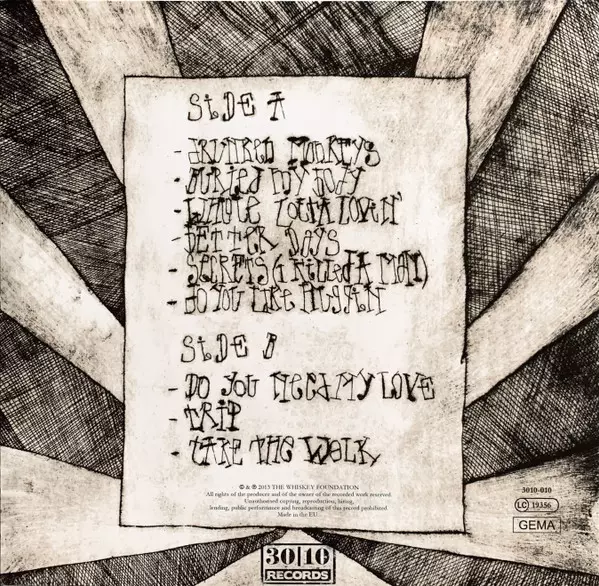 SIDE A
- MONKEYS
- BURIED MY
- WHOLE LOTTA LOVIN'
- BETTER DAYS
- SECRETS (I KILLED A MAN)
- DO YOU LIKE
SIDE B
- DO YOU NEED MY LOVE
- TRIP
- TAKE THE WALK
© & ℗ THE WHISKEY FOUNDATION
All rights of the producer and of the owner of the recorded work reserved.
Unauthorised copying, reproduction, hiring,
lending, public performance and broadcasting of this record prohibited
Made in the EU.
3010-010
LC 19356
GEMA
30|10
RECORDS